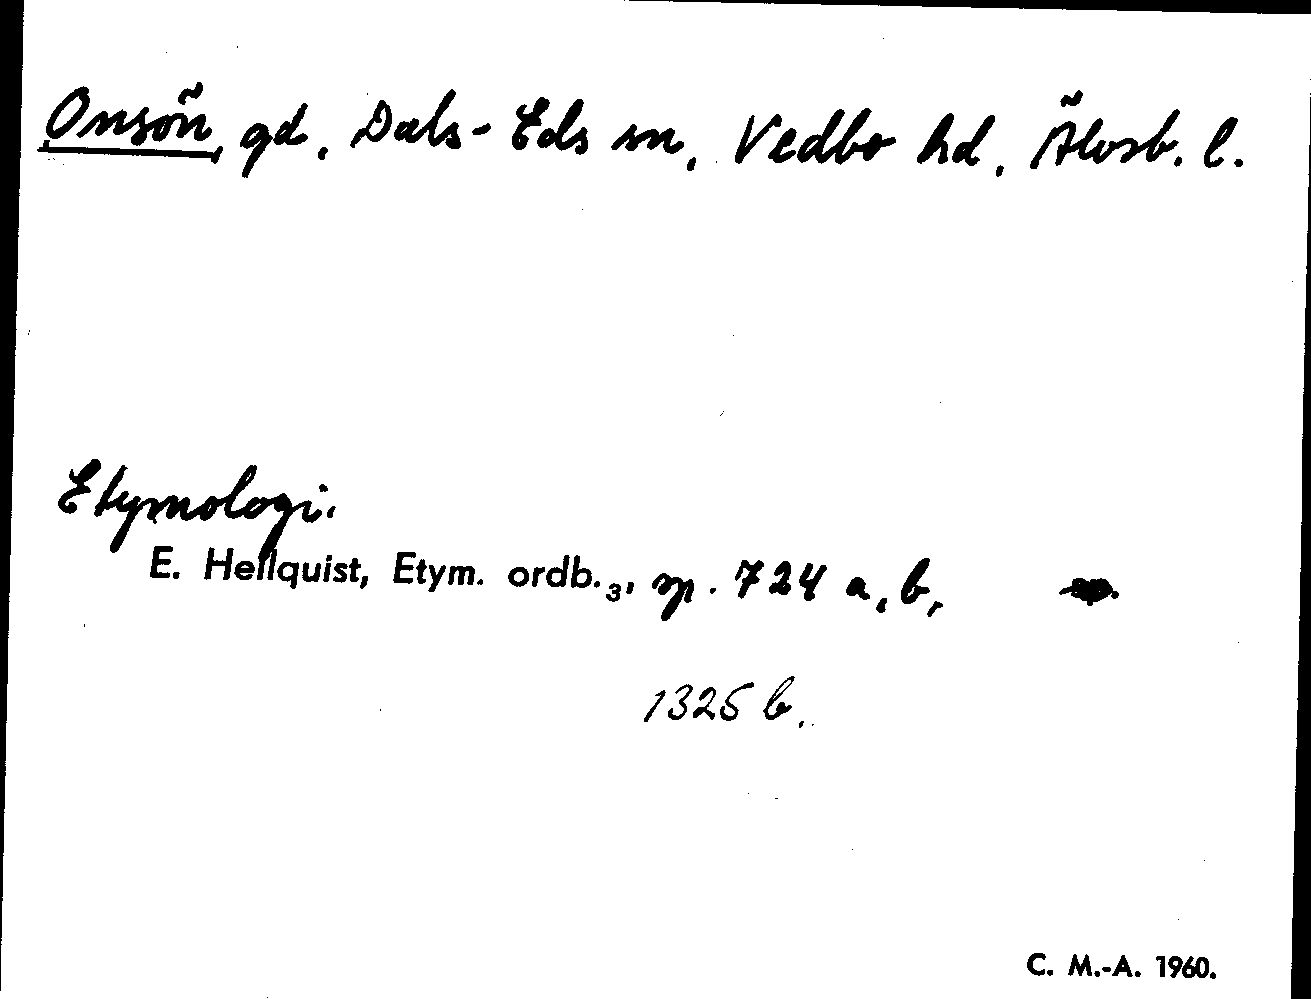 Onsön, gd, Dals-Eds sn, Vedbo hd, Älvsb. l.
Etymologi.
E. Hellquist, Etym. ordb.₃, sp. 724 a, b,
1325 b.
C. M.-A. 1960.